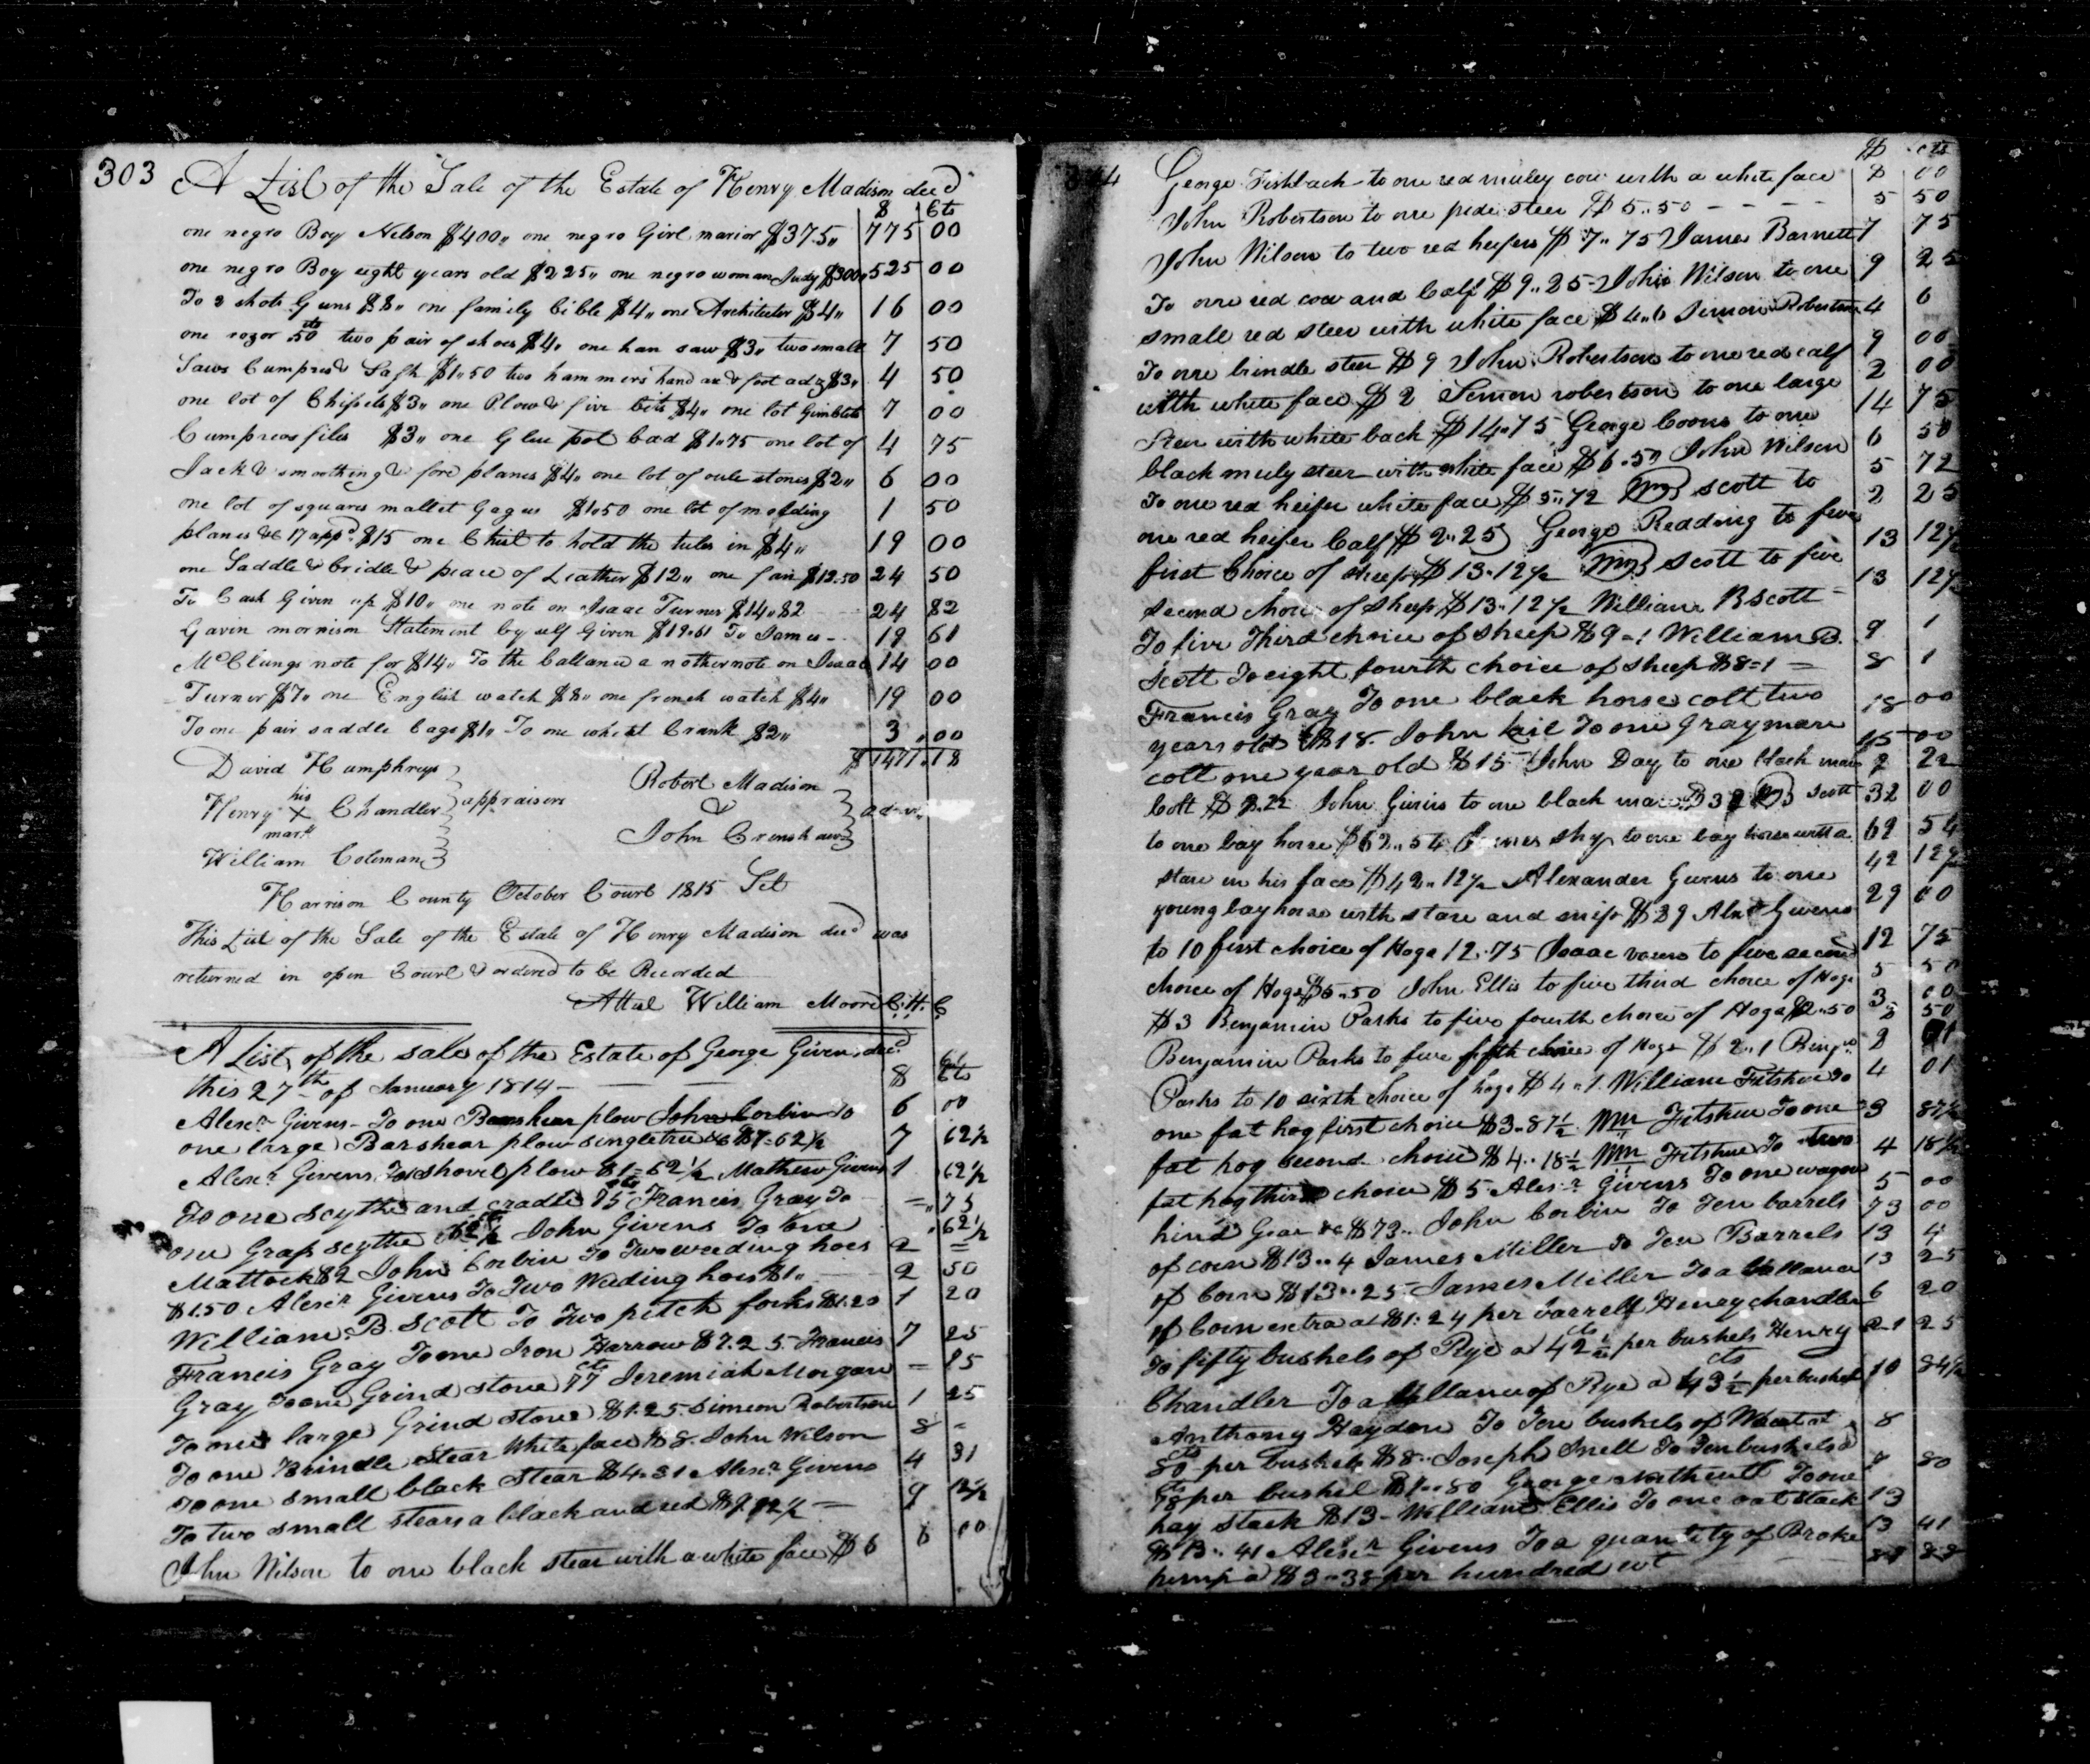 303
A List of the Sale of the Estate of Henry Madison decd
$ Cts
one negro Boy Nelson $400,, one negro Girl marior $375,, 775 00
one negro Boy eight years old $225,, one negro woman Judy $300,, 525 00
To 2 shot Guns $8,, one family bible $4,, one Architector $4,, 16 00
one rozor 50 cts two pair of shoes $4,, one han saw $3,, two small 7 50
Saws Cumpres & Sash $1,,50 two hammers hand ax & foot adz $3,, 4 50
one lot of Chissels $3,, one Plow & five bits $4,, one lot Gimblets 7 00
Cumpreses files $3,, one Glue pot bad $1,,75 one lot of 4 75
Jack & smoothing & fore planes $4,, one lot of oile stones $2,, 6 00
one lot of squares mallet Gages $1,,50 one lot of molding 1 50
planes &c 17 appd $15 one Chist to hold the tules in $4,, 19 00
one Saddle & bridle & peace of Leather $12,, one fan $12.50 24 50
To Cash Given up $10,, one note on Isaac Turner $14,,82 24 82
Gavin mornison Statement by self Given $19.61 To James - 19 61
McClungs note for $14,, To the ballance a nother note on Isaac 14 00
Turner $7,, one English watch $8,, one french watch $4,, 19 00
To one pair saddle bags $1,, To one whet Crank $2,, 3 00
$1471.18
David Humphreys
Henry his X mark Chandler appraisers
William Coleman
Robert Madison
&
John Crenshaw
admrs
Harrison County October Court 1815 Sct
This List of the Sale of the Estate of Henry Madison decd was
returned in open Court & ordered to be Recorded
Attest William Moore C.H.C
A List of the sale of the Estate of George Given decd
this 27th of January 1814 - $ Cts
Alexr Givens - To one Barshear plow John Corbin To 6 00
one large Barshear plow singletree &c $7=62½ 7 62½
Alexr Givens To shovel plow $1=62½ Mathew Givens 1 62½
To one scythe and cradle 75 cts Francis Gray To = 75
one Grass scythe 62½ John Givens To one 62½
Mattock $2 John Corbin To Two weeding hoes 2 =
$1.50 Alexr Givens To Two Weding hoes $1,, 2 50
William B. Scott To Two pitch forks $1.20 1 20
Francis Gray To one Iron Harrow $7.25 Francis 7 25
Gray To one Grind stone 77 cts Jeremiah Morgan = 25
To one large Grind stone $1.25. Simeon Robertson 1 25
To one Brindle Stear White face $8. John Wilson 8 =
To one small black Stear $4.31 Alexr Givens 4 31
To two small stears a black and red $9 12½ = 9 12½
John Wilson to one black stear with a white face $6 6 00
304
$ cts
George Fishback - to one red muley cow with a white face 8 00
John Robertson to one pide steer $5..50 - - - - 5 50
John Wilson to two red heifers $7..75 James Barnett 7 75
To one red cow and Calf $9..25 - John Wilson to one 9 25
small red steer with white face $4..6 Simeon Robertson 4 6
To one brindle steer $9 John Robertson to one red calf 9 00
with white face $2 Semon robertson to one large 2 00
Steer with white back $14.75 George Coons to one 14 75
black muly steer with white face $6.50 John Wilson 6 50
To one red heifer white face $5..72 Wm B scott to 5 72
one red heifer Calf $2..25 George Redding to five 2 25
first Choice of sheep $13.12½ Wm B Scott to five 13 12½
second choice of sheep $13.12½ William B Scott - 13 12½
To five Third choice of sheep $9=1 William B. 9 1
Scott To eight fourth choice of sheep $8=1 = 8 1
Francis Gray To one black horse colt two
years old $18. John Kail To one Gray mare 18 00
colt one year old $15 John Day to one black mare 15 00
Colt $2.22 John Givins to one black mare $32 B Scott 2 22
to one bay horse $62..54 James Shy to one bay horse with a 32 00
stare in his face $42..12½ Alexander Givens to one 62 54
young bay horse with stare and snip $29 Alexr Givens 42 12½
to 10 first choice of Hogs 12.75 Isaac to five second 29 00
choice of Hogs $5..50 John Ellis to five third choice of Hogs 12 75
$3 Benjamin Parks to five fourth choice of Hogs $2..50 5 50
Benjamin Parks to five fifth choice of Hogs $2..1 Benjn 3 00
Parks to 10 sixth choice of hogs $4..1. William Fitshue To 2 50
one fat hog first choice $3-87½ Wm Fitshue To one 2 01
fat hog second choice $4..18½ Wm Fitshue To two 4 01
fat hog third choice $5 Alexr Givens To one wagon 3 87½
hind Gear &c $73.. John Corbin To Ten barrels 4 18½
of corn $13..4 James Miller To Ten Barrels 5 00
of Corn $13..25 James Miller To a ballance 73 00
of Corn extra at $1.24 per barrell Henry chandler 13 4
To fifty bushels of Rye a 42½ cts per bushels Henry 13 25
Chandler To a ballance of Rye a 43½ cts per bushel 6 20
Anthony Haydon To Ten bushels of Wheat at 21 25
80 cts per bushels $8.. Joseph Snell To Ten bushels a 10 84½
78 cts per bushel $7..80 George Northcutt To one 8
hay stack $13 - William Ellis To one oat stack 7 80
$13..41 Alexr Givens To a quantity of Broke 13
hemp a $3..38 per hundred wt 13 41